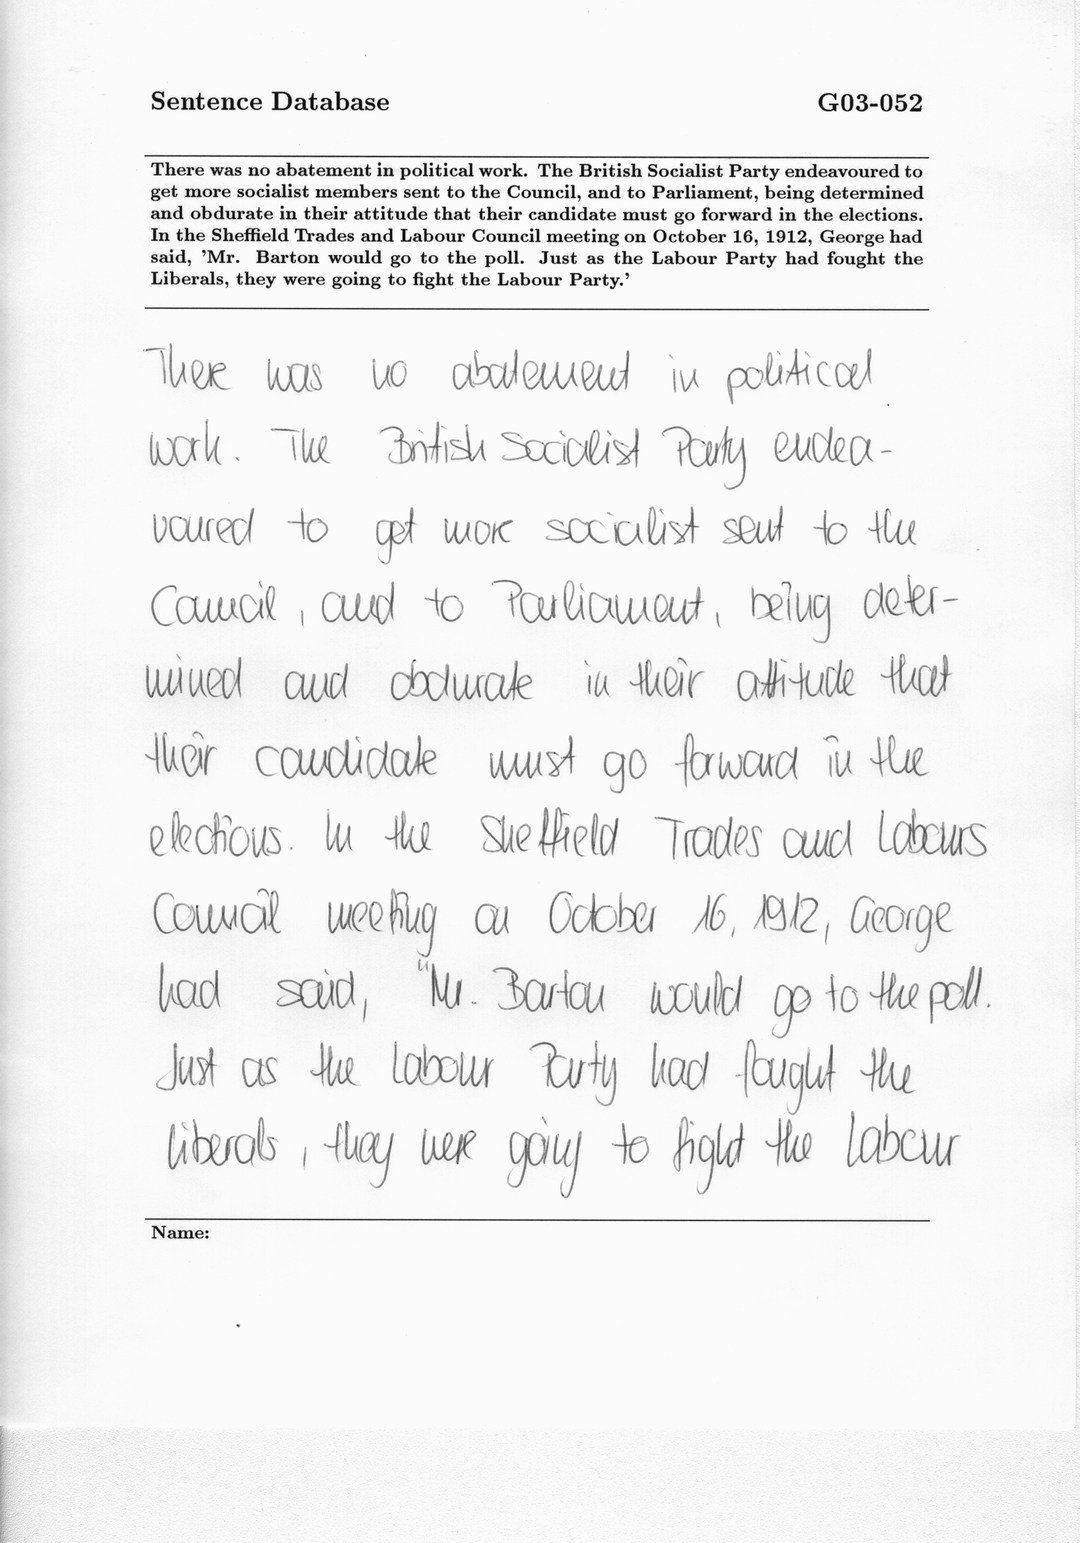 Sentence Database G03-052
There was no abatement in political work. The British Socialist Party endeavoured to
get more socialist members sent to the Council, and to Parliament, being determined
and obdurate in their attitude that their candidate must go forward in the elections.
In the Sheffield Trades and Labour Council meeting on October 16, 1912, George had
said, 'Mr. Barton would go to the poll. Just as the Labour Party had fought the
Liberals, they were going to fight the Labour Party.'
There was no abatement in political
work. The British Socialist Party endea-
voured to get more socialist sent to the
Council, and to Parliament, being deter-
mined and obdurate in their attitude that
their candidate must go forward in the
elections. In the Sheffield Trades and Labours
Council meeting on October 16, 1912, George
had said, "Mr. Barton would go to the poll.
Just as the Labour Party had fought the
Liberals, they were going to fight the Labour
Name: